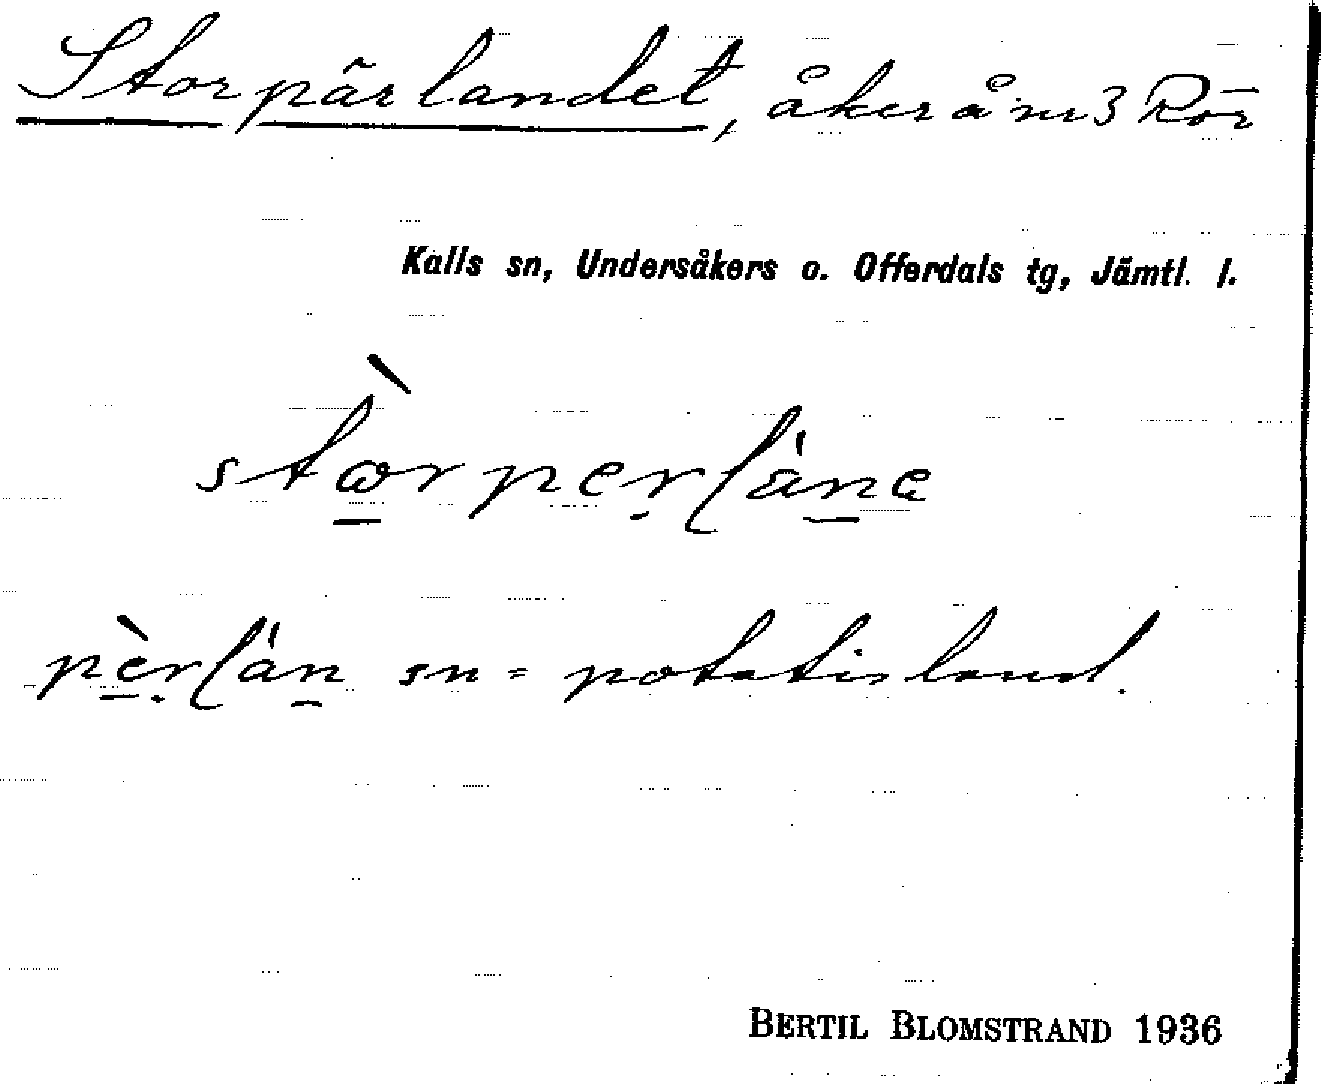 Storpärlandet, åker å nr 3 Rör
Kalls sn, Undersåkers o. Offerdals tg, Jämtl. l.
stòrperláne
pèrlán sn = potatisland.
BERTIL BLOMSTRAND 1936